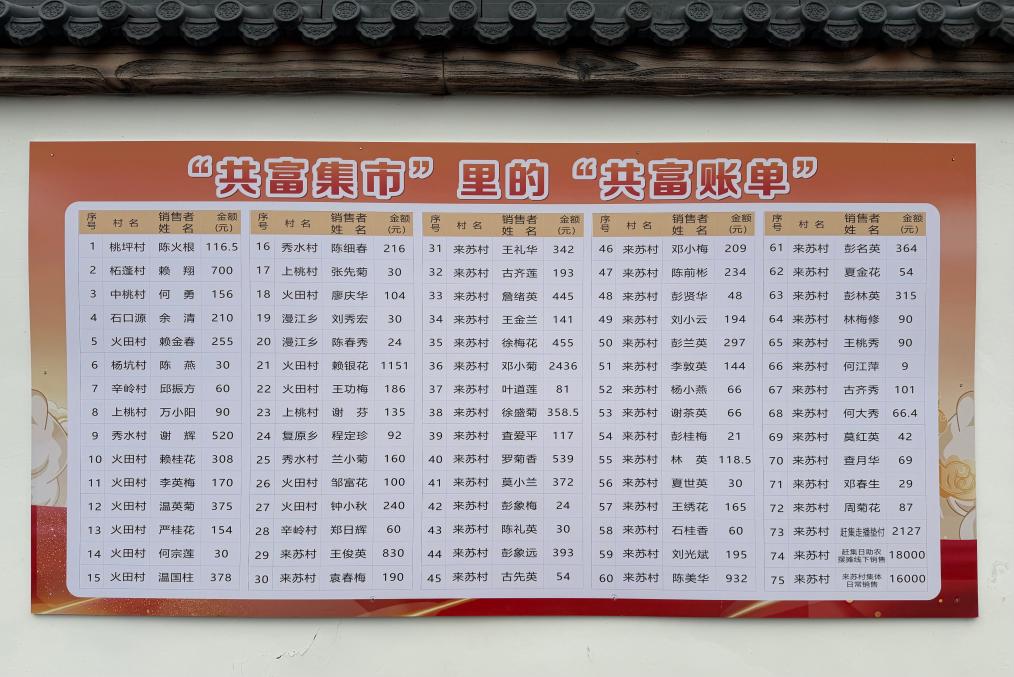 “共富集市”里的“共富账单”
序号 村名 销售者姓名 金额(元)
1 桃坪村 陈火根 116.5
2 柘蓬村 赖翔 700
3 中桃村 何勇 156
4 石口源 余清 210
5 火田村 赖金春 255
6 杨坑村 陈燕 30
7 辛岭村 邱振方 60
8 上桃村 万小阳 90
9 秀水村 谢辉 520
10 火田村 赖桂花 308
11 火田村 李英梅 170
12 火田村 温英菊 375
13 火田村 严桂花 154
14 火田村 何宗莲 30
15 火田村 温国柱 378
序号 村名 销售者姓名 金额(元)
16 秀水村 陈细春 216
17 上桃村 张先菊 30
18 火田村 廖庆华 104
19 漫江乡 刘秀宏 30
20 漫江乡 陈春秀 24
21 火田村 赖银花 1151
22 火田村 王功梅 186
23 上桃村 谢芬 135
24 复原乡 程定珍 92
25 秀水村 兰小菊 160
26 火田村 邹富花 100
27 火田村 钟小秋 240
28 辛岭村 郑日辉 60
29 来苏村 王俊英 830
30 来苏村 袁春梅 190
序号 村名 销售者姓名 金额(元)
31 来苏村 王礼华 342
32 来苏村 古齐莲 193
33 来苏村 詹绪英 445
34 来苏村 王金兰 141
35 来苏村 徐梅花 455
36 来苏村 邓小菊 2436
37 来苏村 叶道莲 81
38 来苏村 徐盛菊 358.5
39 来苏村 查爱平 117
40 来苏村 罗菊香 539
41 来苏村 莫小兰 372
42 来苏村 彭象梅 24
43 来苏村 陈礼英 30
44 来苏村 彭象远 393
45 来苏村 古先英 54
序号 村名 销售者姓名 金额(元)
46 来苏村 邓小梅 209
47 来苏村 陈前彬 234
48 来苏村 彭贤华 48
49 来苏村 刘小云 194
50 来苏村 彭兰英 297
51 来苏村 李敦英 144
52 来苏村 杨小燕 66
53 来苏村 谢茶英 66
54 来苏村 彭桂梅 21
55 来苏村 林英 118.5
56 来苏村 夏世英 30
57 来苏村 王绣花 165
58 来苏村 石桂香 60
59 来苏村 刘光斌 195
60 来苏村 陈美华 932
序号 村名 销售者姓名 金额(元)
61 来苏村 彭名英 364
62 来苏村 夏金花 54
63 来苏村 彭林英 315
64 来苏村 林梅修 90
65 来苏村 王桃秀 90
66 来苏村 何江萍 9
67 来苏村 古齐秀 101
68 来苏村 何大秀 66.4
69 来苏村 莫红英 42
70 来苏村 查月华 69
71 来苏村 邓春生 29
72 来苏村 周菊花 87
73 来苏村 赶集走播垫付 2127
74 来苏村 赶集日助农摆摊线下销售 18000
75 来苏村 来苏村集体日常销售 16000